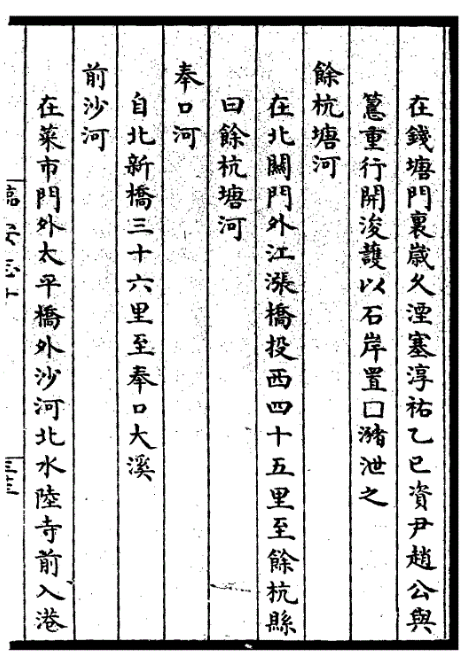 在錢塘門裏歲久湮塞淳祐乙巳資尹趙公與
𥲅重行開浚護以石岸置口瀦泄之
餘杭塘河
在北關門外江漲橋投西四十五里至餘杭縣
曰餘杭塘河
奉口河
自北新橋三十六里至奉口大溪
前沙河
在菜市門外太平橋外沙河北水陸寺前入港